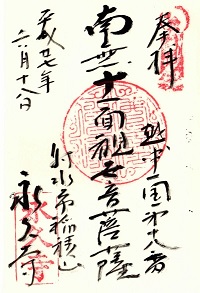 奉拝
越中一国第十八番
南無十一面観世音菩薩
射水市稲積山
永久寺
平成廿七年
六月十八日